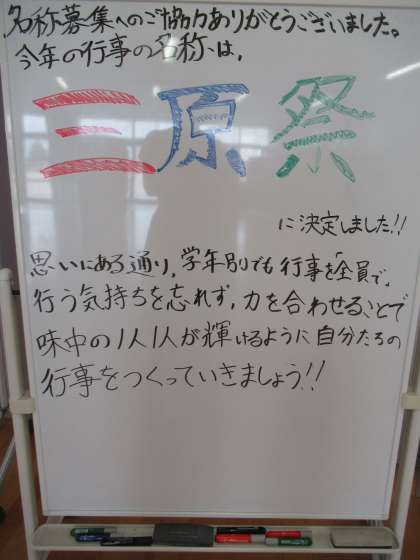 名称募集へのご協力ありがとうございました。
今年の行事の名称は、
三原祭
に決定しました!!
思いにある通り、学年別でも行事を「全員で」
行う気持ちを忘れず、力を合わせることで
味中の1人1人が輝けるように自分たちの
行事をつくっていきましょう!!